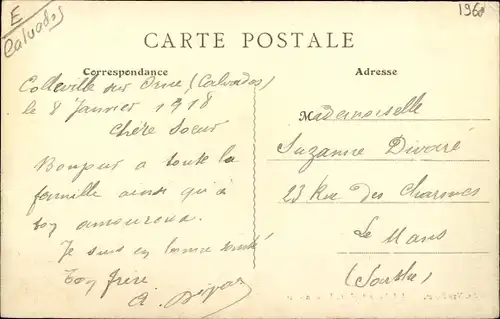 E
Calvados
1960
CARTE POSTALE
Correspondance
Colleville sur Orne (Calvados)
le 8 Janvier 1918
Chère Soeur
Bonjour a toute la
famille ainsi qu'à
ton amoureux.
Je suis en bonne santé
Ton frère
A.
Adresse
Mademoiselle
Suzanne
23 Rue des Charmes
Le Mans
(Sarthe)